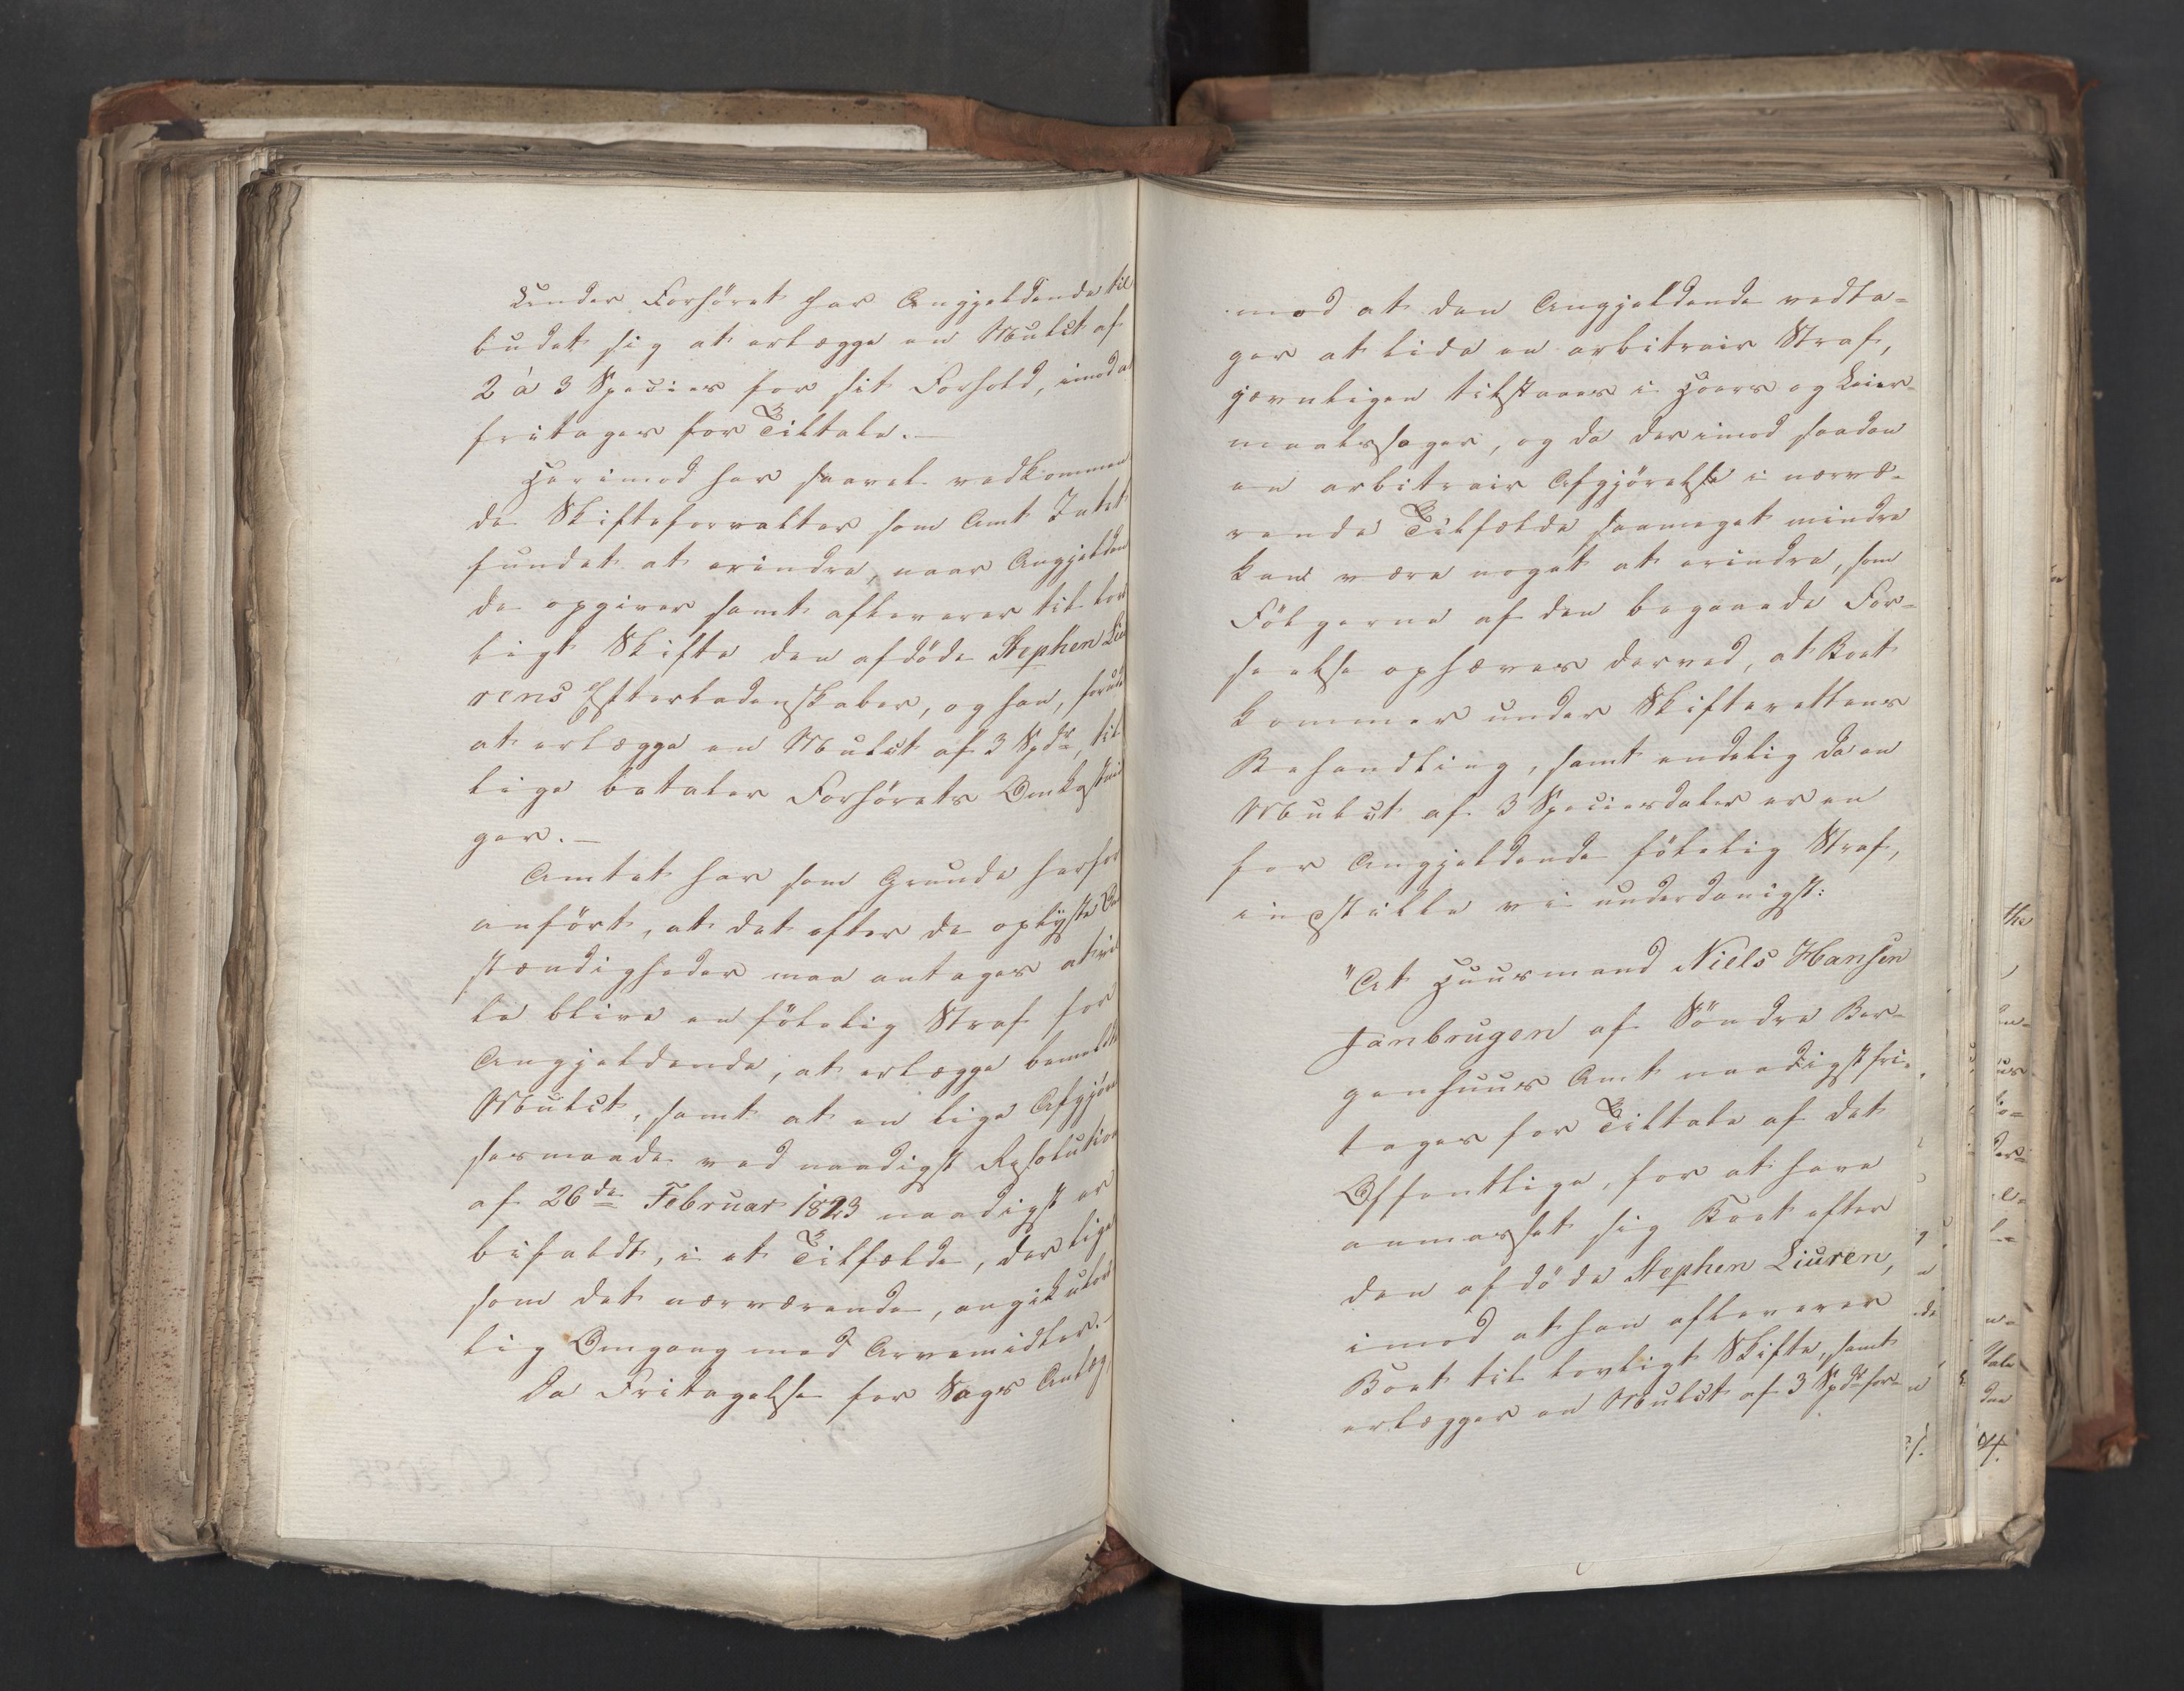 Under Forhöret har Angjeldende til
budet sig at erlægge en Mulct af
2 à 3 Species for sit Forhold, imod at
fritages for Tiltale.—
Herimod har saavel vedkommen
de Skifteforvalter som Amt Intet
fundet at erindre, naar Angjelden
de opgiver samt afleverer til lov
ligt Skifte den afdöde Stephen Liu
rens Efterladenskaber, og han, foruden
at erlægge en Mulct af 3 Spdr, til
lige betaler Forhörets Omkostnin
ger.—
Amtet har som Grunde herfor
anfört, at det efter de oplyste Om
stændigheder maa antages at vil
le blive en fölelig Straf for
Angjeldende, at erlægge bemeldte
Mulct, samt at en lige Afgjörel
sesmaade ved naadigst Resolution
af 26de Februar 1823 naadigst er
bifaldt, i et Tilfælde, der lige
som det nærværende, angik ulov
lig Omgang med Arvemidler.—
Da Fritagelse for Sags Anlæg,
mod at den Angjeldende vedta-
ger at lide en arbitrair Straf,
jævnligen tilstaaes i Hoers og Leier-
maalssager, og da der imod saadan
en arbitrair Afgjörelse i nærvæ-
rende Tilfælde saameget mindre
kan være noget at erindre, som
Fölgerne af den begaaede For-
seelse ophæves derved, at Boet
kommer under Skifterettens
Behandling, samt endelig da en
Mulct af 3 Speciesdaler er en
for Angjeldende fölelig Straf,
indstille vi underdanigst:
"At Huusmand Niels Hansen
Janbrugen af Söndre Ber-
genhuus Amt naadigst fri-
tages for Tiltale af det
Offentlige, for at have
anmasset sig Boet efter
den afdöde Stephen Liuren,
imod at han afleverer
Boet til lovligt Skifte, samt
erlægger en Mulct af 3 Spdr for-